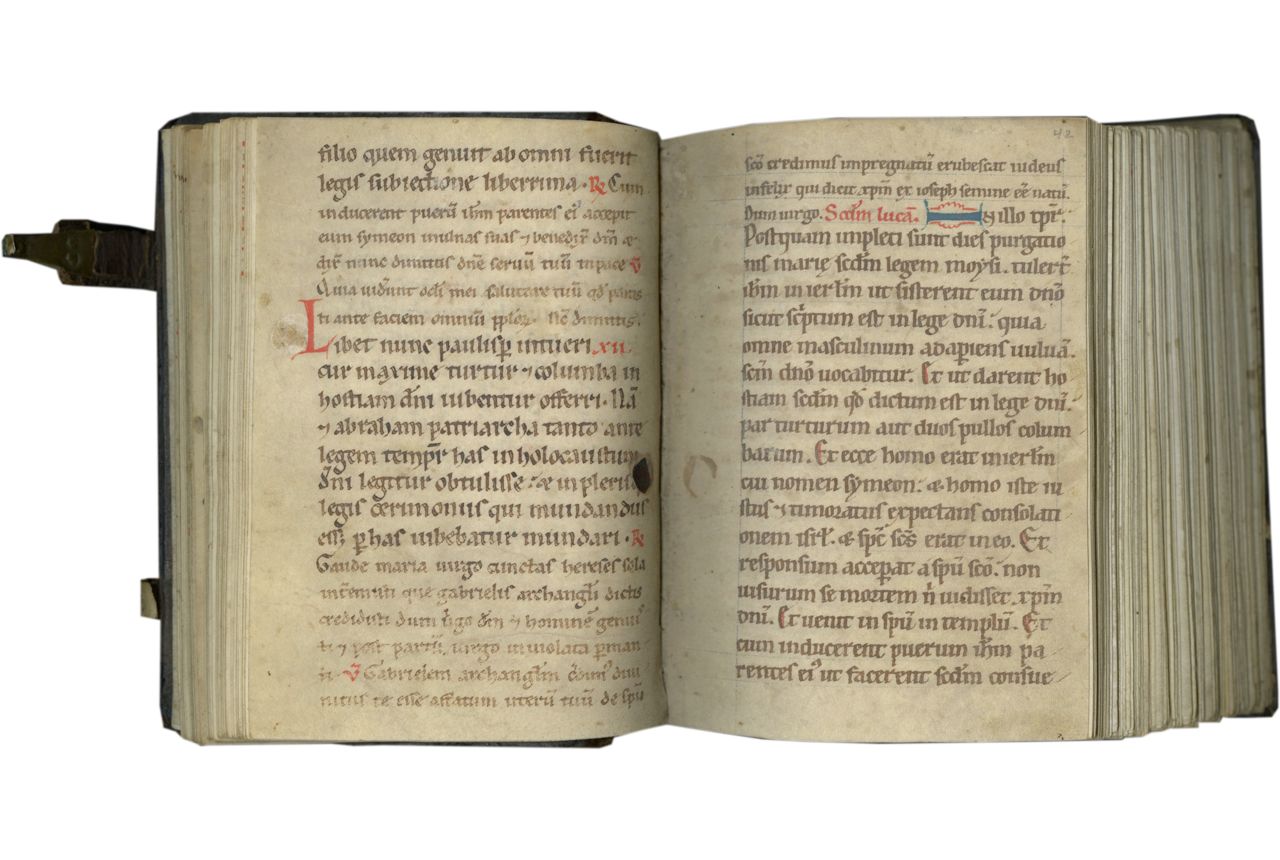 filio quem genuit ab omni fuerit
legis subiectione liberrima · R̃ Cum
inducerent pueru̅ ih̅m parentes ei᾽ accepit
eum symeon in ulnas suas ⁊ benedix̅ dn̅m &
dix̅ nunc dimittis dn̅e seruu̅ tuu̅ in pace V̅
Quia uider̅unt oc̅li mei salutare tuu̅ qd̅ paras
ti ante faciem omniu̅ pp̅lor̅. Nc̅ dimittis.
Libet nunc paulisp̅ intueri xii
cur maxime turtur ⁊ columba in
hostiam d̅ni iubentur offerri · Na̅
⁊ abraham patriarcha tanto ante
legem temp̅r has in holocaustum
d̅ni legitur obtulisse · & in pleris
legis cerimoniis qui mundandus
ess& p̲ has iubebatur mundari · R̃
Gaude maria uirgo cunctas hereses sola
int̅emisti que gabrielis archangl̅i dictis
credidisti dum u̅go d̅m ⁊ homine̅ genuis
ti ⁊ post partu̅ uirgo inuiolata p̲man
V̅ Gabrielem archangl̅m
nitus te esse affatum uteru̅ tuu̅ de sp̅u
42
sc̅o credimus impregnatu̅ erubescat iudeus
infelix qui dicit xp̅m ex ioseph semine ee̅ natu̅.
Dum uirgo. Scd̅m luca̅. In illo tp̅r.
Postquam impleti sunt dies purgatio
nis marię scd̅m legem moysi. tuler̅t
ih̅m in ierl̅m ut sisterent eum dn̅o
sicut sc̅ptum est in lege dn̅i. quia
omne masculinum adap̲iens uuluā.
sc̅m dn̅o uocabitur. Et ut darent ho
stiam scd̅m qd̅ dictum est in lege dn̅i.
par turturum aut duos pullos colum
barum. Et ecce homo erat in ierl̅m
cui nomen symeon. & homo iste iu
stus ⁊ timoratus expectans consolati
onem isrl̅. & sp̅c sc̅s erat in eo. Et
responsum accep̲at a sp̅u sc̅o. non
uisurum se mortem n̅ uidisset xp̅m
dn̅i. Et uenit in sp̅u in templu̅. Et
cum inducerent puerum ih̅m pa
rentes ei᾽ ut facerent scd̅m consue